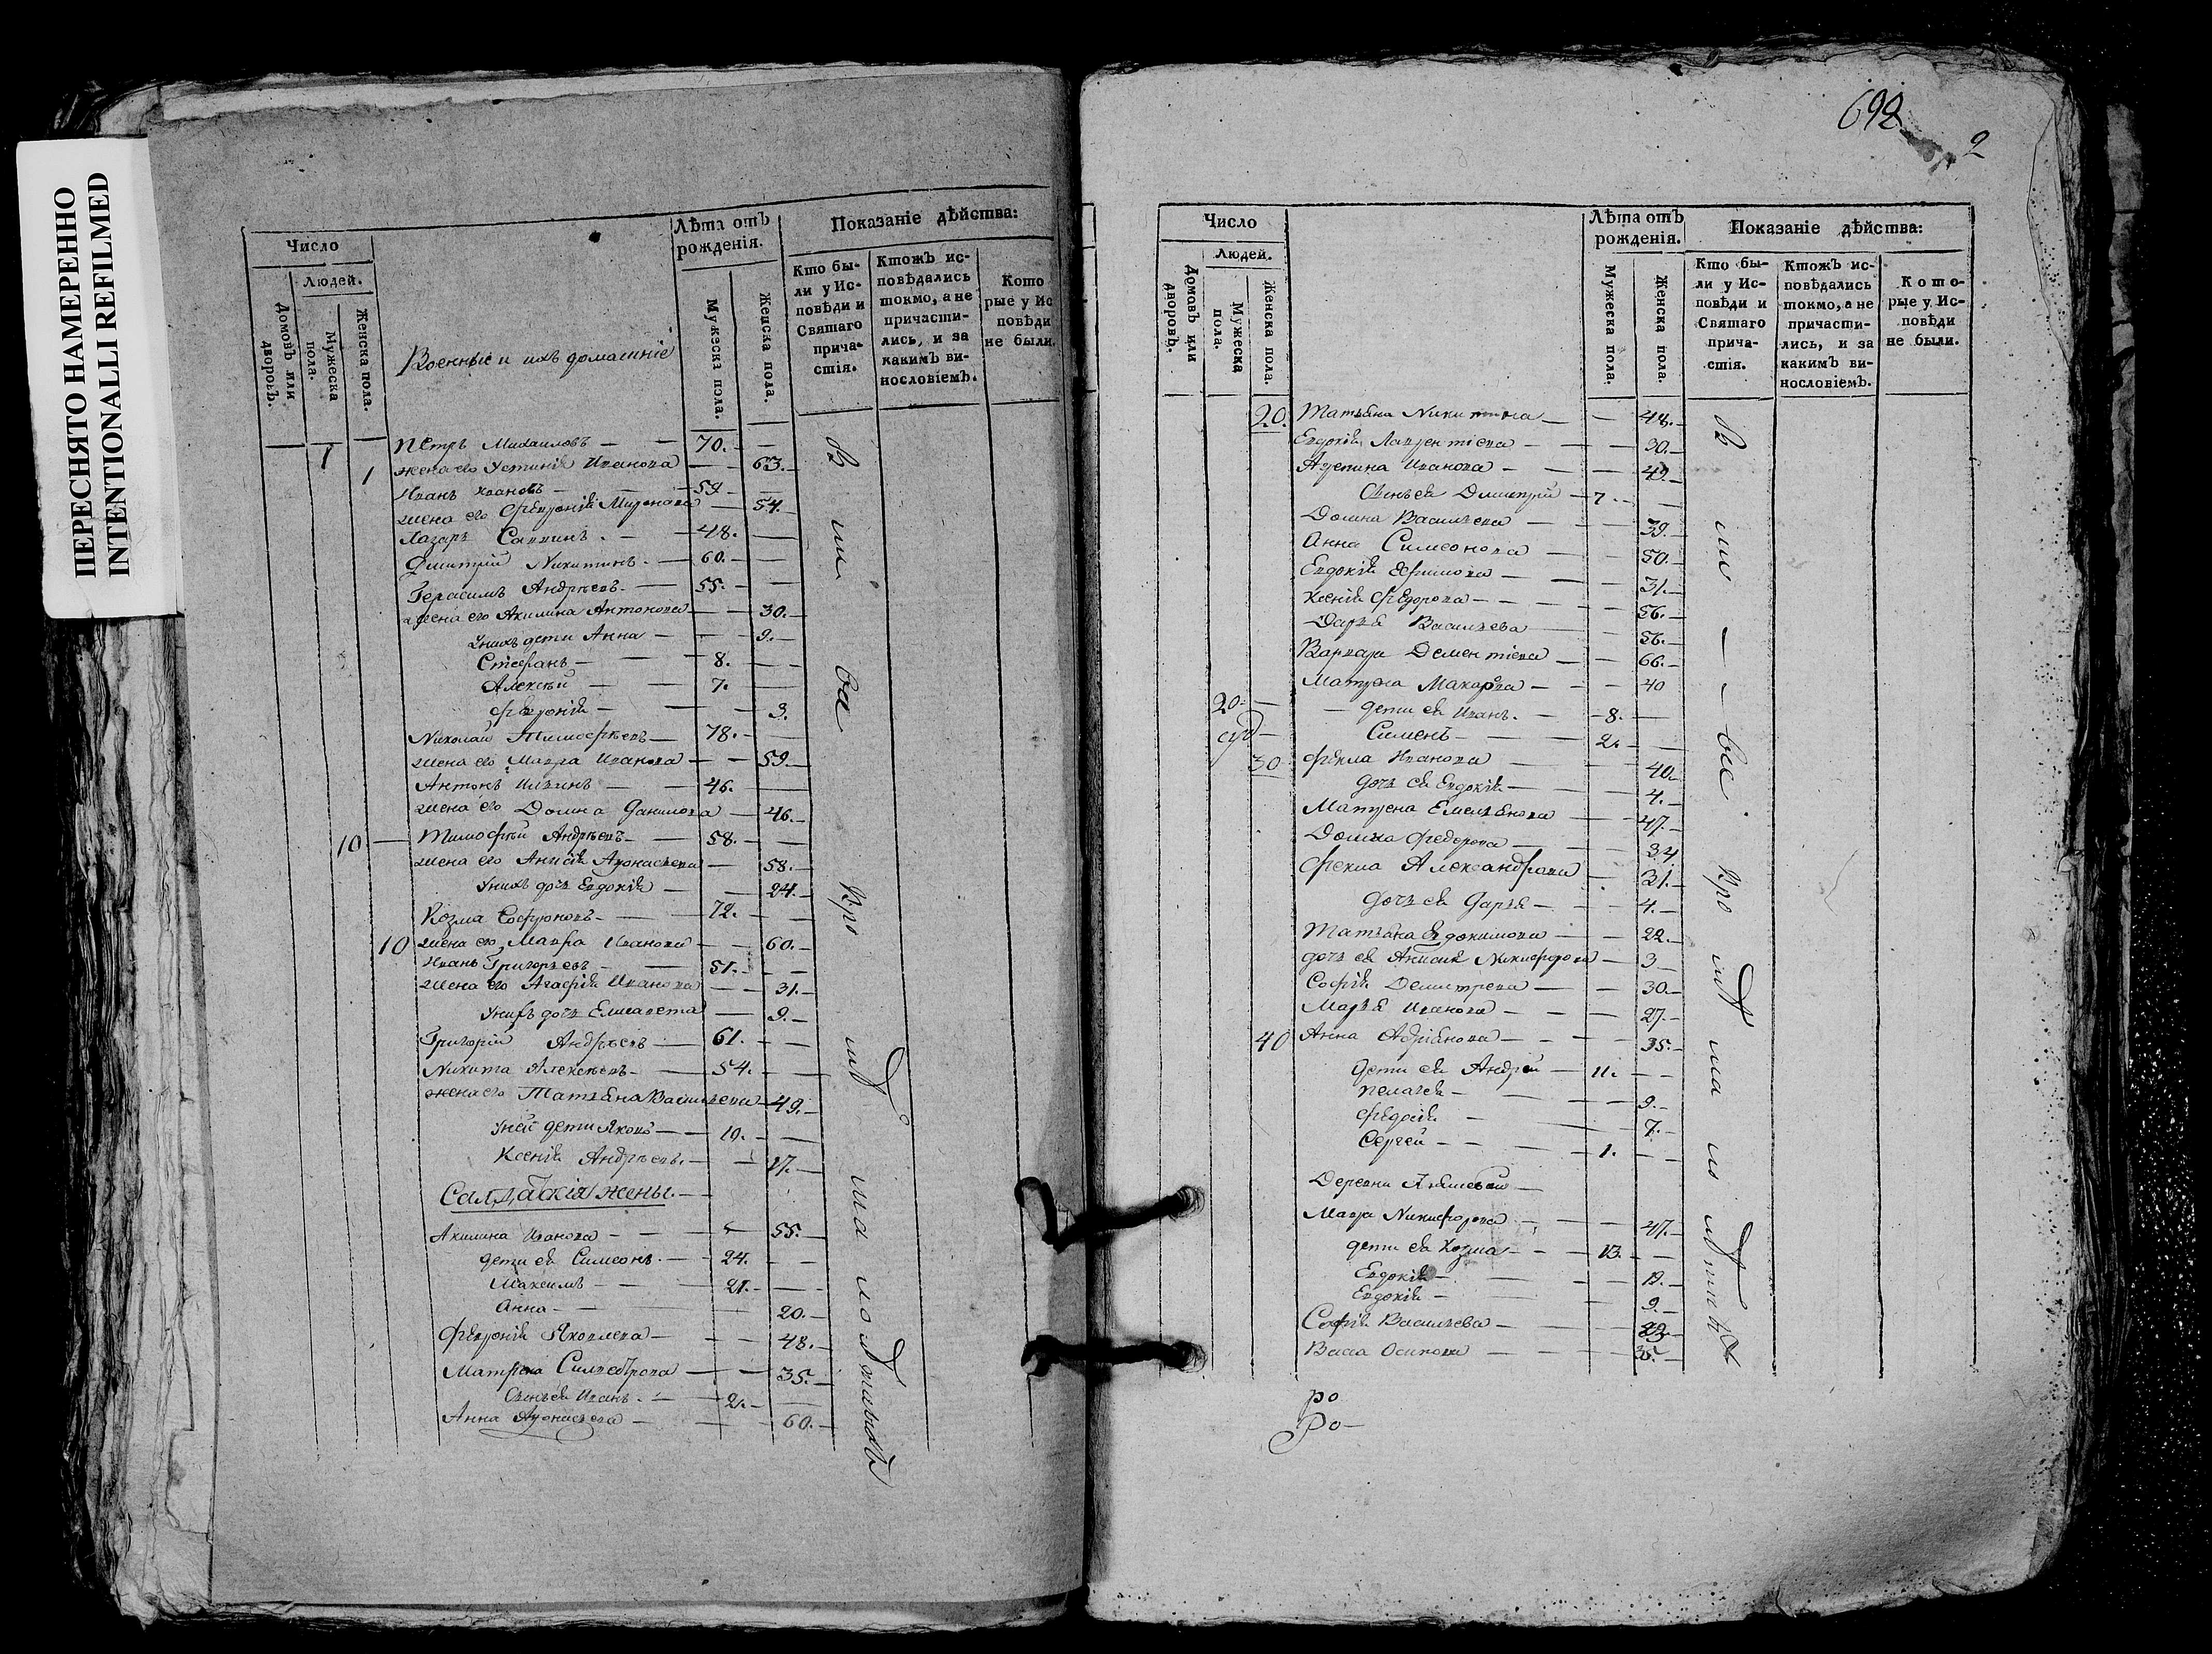 ПЕРЕСНЯТО НАМЕРЕННО
INTENTIONALLI REFILMED
Число
Людей.
Домовъ или дворовъ.
Мужеска пола.
Женска пола.
Военные и ихъ домашніе
Лѣта отъ рожденія.
Мужеска пола.
Женска пола.
Показаніе дѣйства:
Кто бы-
ли у Ис-
повѣди и
Святаго
прича-
стія.
Ктожъ ис-
повѣдались
токмо, а не
причасти-
лись, и за
какимъ ви-
нословіемъ.
Кото
рые у Ис
повѣди
не были.
1 Петръ Михаиловъ — 70.
1 жена его Устинія Иванова — 63.
Иванъ Ивановъ — 59.
жена его Февронія Миронова — 54.
Лазарь Саввинъ — 48.
Дмитрій Никитинъ — 60.
Герасимъ Андреевъ — 55.
жена его Акилина Антонова — 30.
Унихъ дети Анна — 9.
Стефанъ — 8.
Алексѣй — 7.
Февронія — 3.
Николай Тимофѣевъ — 78.
жена его Мавра Иванова — 59.
Антонъ Ильинъ — 46.
жена его Домна Данилова — 46.
10 Тимофѣй Андреевъ — 58.
жена его Анисія Афонасьева — 58.
Унихъ дочь Евдокія — 24.
Козма Софроновъ — 72.
10 жена его Мавра Иванова — 60.
Иванъ Григорьевъ — 51.
жена его Агафія Иванова — 31.
Унихъ дочь Елисавета — 9.
Григорій Андреевъ — 61.
Никита Алексѣевъ — 54.
жена его Татьяна Васильева — 49.
Уней дети Яковъ — 19.
Ксенія Андреева — 17.
Салдатскія жены.
Акилина Иванова — 55.
дети ея Симеонъ — 24.
Максимъ — 21.
Анна — 20.
Февронія Яковлева — 48.
Матрена Силвестрова — 35.
Сынъ ея Иванъ — 2.
Анна Афонасьева — 60.
692
2
Число
Людей.
Домовъ или дворовъ.
Мужеска пола.
Женска пола.
Лѣта отъ рожденія.
Мужеска пола.
Женска пола.
Показаніе дѣйства:
Кто бы-
ли у Ис-
повѣди и
Святаго
прича-
стія.
Ктожъ ис-
повѣдались
токмо, а не
причасти-
лись, и за
какимъ ви-
нословіемъ.
Кото-
рые у Ис-
повѣди
не были.
20. Татьяна Никитина — 48.
Евдокія Лаврентіева — 30.
Агрепина Иванова — 49.
Сынъ ея Дмитрій — 7.
Домна Васильева — 39.
Анна Симеонова — 50.
Евдокія Ефимова — 31.
Ксенія Федорова — 56.
Дарья Васильева — 56.
Варвара Дементіева — 66.
Матрена Макарова — 40
20. дети ея Иванъ — 8.
Сименъ — 2.
30 Фекла Иванова — 40.
дочь ея Евдокія — 4.
Матрена Емельянова — 47.
Домна Федорова — 34
Фекла Александрова — 31.
дочь ея Дарья — 4.
Татьяна Евдокимова — 22.
дочь ея Никифорова — 3
Софія Демитрева — 30.
Марья Иванова — 27.
40 Анна Адріянова — 35.
дети ея Андрей — 11.
Пелагея — 9.
Федосія — 7.
Сергей — 1.
Деревни
Мавра Никифорова — 47.
дети ея Козма — 13.
Евдокія — 19.
Евдокія — 9.
Софія Васильева
Васса Осипова — 35.
ро
Ро